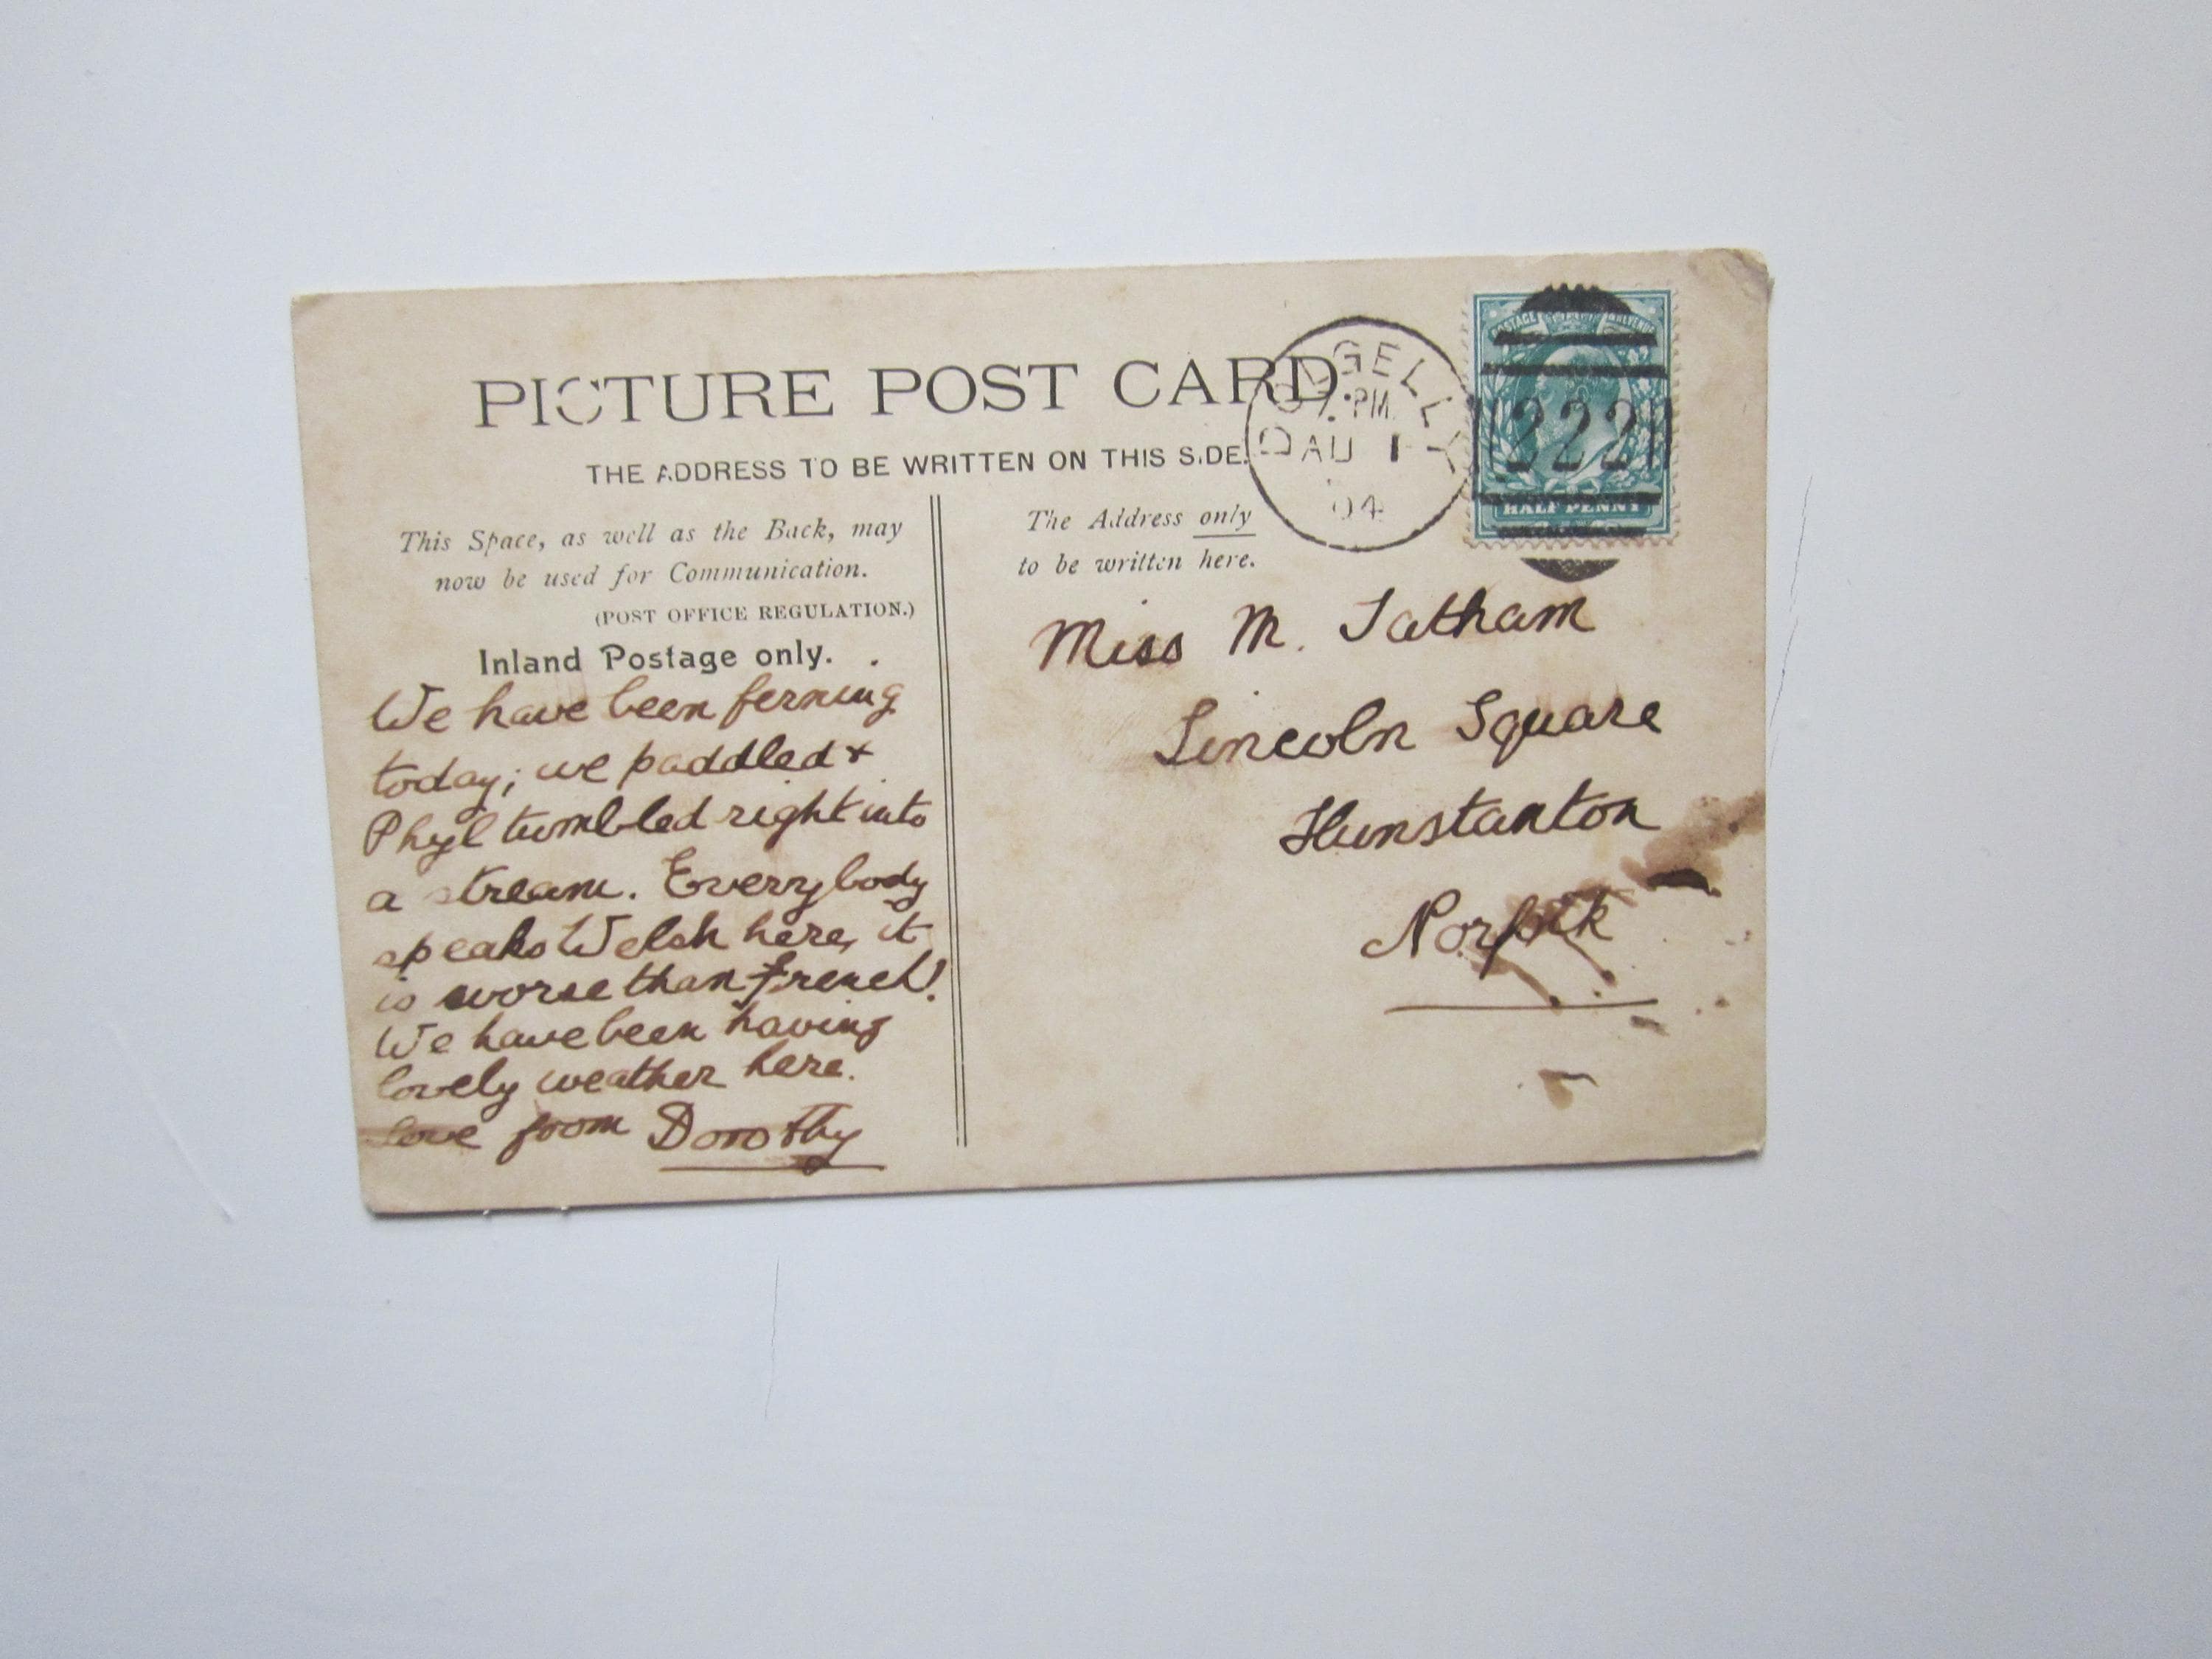 PICTURE POST CARD.
THE ADDRESS TO BE WRITTEN ON THIS SIDE.
This Space, as well as the Back, may
now be used for Communication.
(POST OFFICE REGULATION.)
Inland Postage only.
We have been ferning
today; we paddled +
Phyl tumbled right into
a stream. Everybody
speaks Welsh here, it
is worse than French!
We have been having
lovely weather here.
love from Dorothy
The Address only
to be written here.
Miss M. Tatham
Lincoln Square
Hunstanton
Norfolk
DOLGELLY
7. PM
AU 1
04
222
POSTAGE REVENUE
HALF PENNY